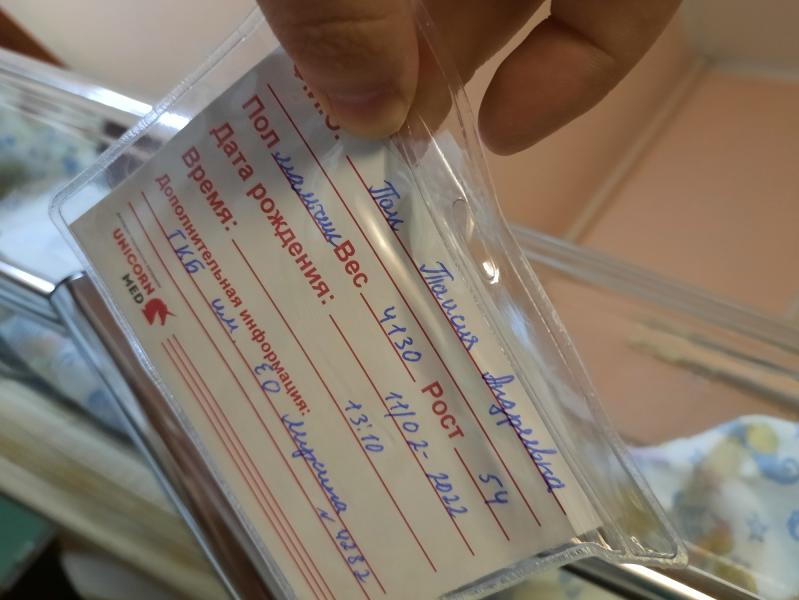 Ф.И.О. Пак Таисия Андреевна
Пол мальчик Вес 4130 Рост 54
Дата рождения: 11/02-2022
Время: 13:10
Дополнительная информация:
ГКБ им. ЕО Мухина № 4282
UNICORN
MED